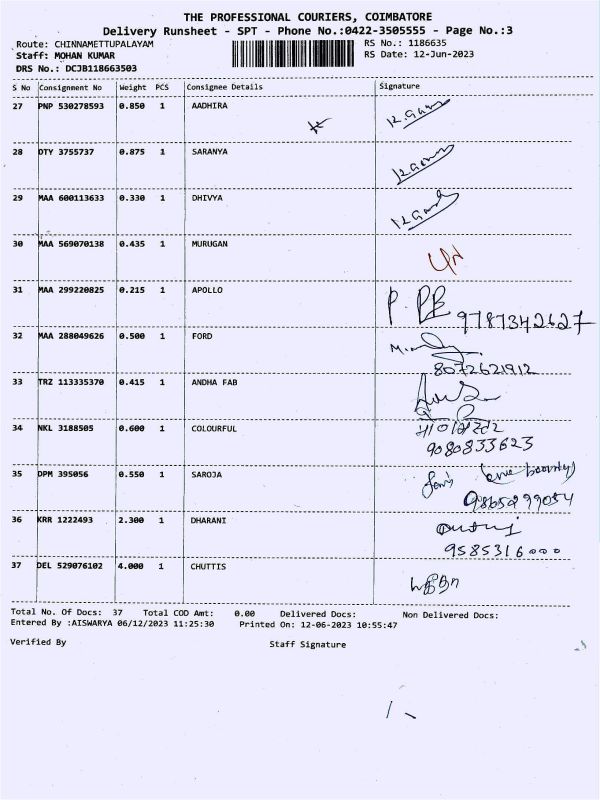 THE PROFESSIONAL COURIERS, COIMBATORE
Delivery Runsheet - SPT - Phone No.:0422-3505555 - Page No.:3
Route: CHINNAMETTUPALAYAM RS No.: 1186635
Staff: MOHAN KUMAR RS Date: 12-Jun-2023
DRS No.: DCJB118663503
S No Consignment No Weight PCS Consignee Details Signature
27 PNP 530278593 0.850 1 AADHIRA
28 DTY 3755737 0.875 1 SARANYA
29 MAA 600113633 0.330 1 DHIVYA
30 MAA 569070138 0.435 1 MURUGAN
31 MAA 299220825 0.215 1 APOLLO
9787342627
32 MAA 288049626 0.500 1 FORD
8072621912
33 TRZ 113335370 0.415 1 ANDHA FAB
34 NKL 3188505 0.600 1 COLOURFUL
9080833623
35 DPM 395056 0.550 1 SAROJA
36 KRR 1222493 2.300 1 DHARANI
9585316000
37 DEL 529076102 4.000 1 CHUTTIS
Total No. Of Docs: 37 Total COD Amt: 0.00 Delivered Docs: Non Delivered Docs:
Entered By :AISWARYA 06/12/2023 11:25:30 Printed On: 12-06-2023 10:55:47
Verified By Staff Signature